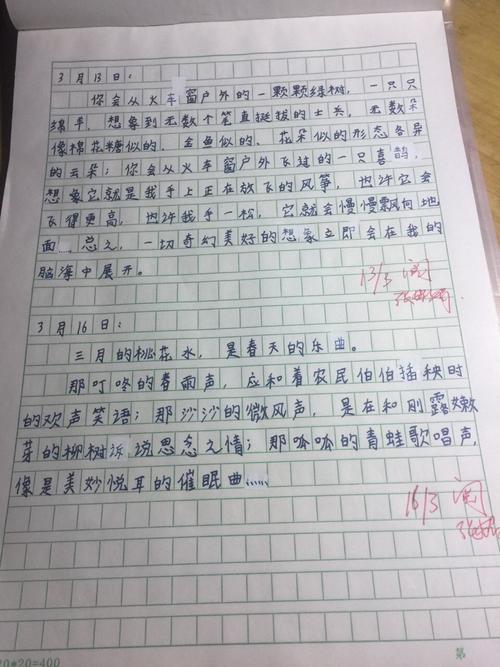 3月13日:
你会从火车窗户外的一颗颗绿树,一只只
绵羊,想象到无数个笔直挺拔的士兵,无数朵
像棉花糖似的、金鱼似的、花朵似的形态各异
的云朵;你会从火车窗户外飞过的一只喜鹊,
想象它就是我手上正在放飞的风筝,也许它会
飞得更高,也许我手一松,它就会慢慢飘向地
面……总之,一切奇幻美好的想象立即会在我的
脑海中展开。
13/3 阅
3月16日:
三月的桃花水,是春天的乐曲。
那叮咚的春雨声,应和着农民伯伯插秧时
的欢声笑语;那沙沙的微风声,是在和刚露嫩
芽的柳树诉说思念之情;那呱呱的青蛙歌唱声,
像是美妙悦耳的催眠曲……
16/3 阅
20*20=400
第